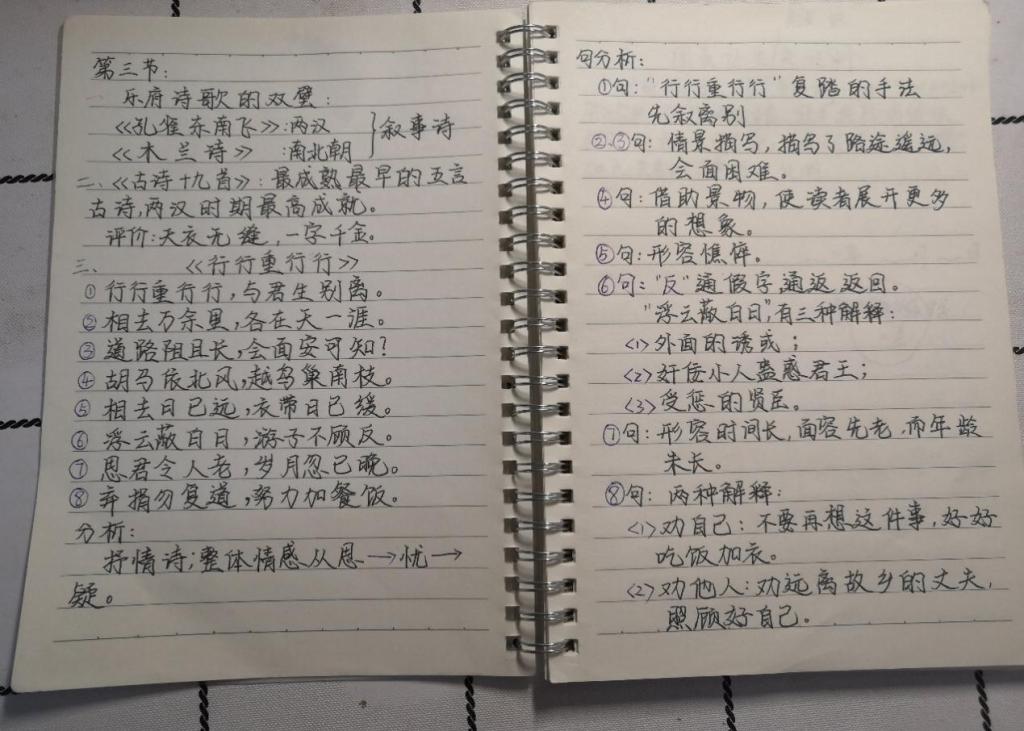 第三节:
一 乐府诗歌的双璧:
《孔雀东南飞》:两汉 }叙事诗
《木兰诗》:南北朝
二、《古诗十九首》: 最成熟最早的五言
古诗,两汉时期最高成就。
评价:天衣无缝,一字千金。
三、 《行行重行行》
① 行行重行行,与君生别离。
② 相去万余里,各在天一涯。
③ 道路阻且长,会面安可知?
④ 胡马依北风,越鸟巢南枝。
⑤ 相去日已远,衣带日已缓。
⑥ 浮云蔽白日,游子不顾反。
⑦ 思君令人老,岁月忽已晚。
⑧ 弃捐勿复道,努力加餐饭。
分析:
抒情诗;整体情感从思→忧→
疑。
句分析:
①句:"行行重行行"复踏的手法
先叙离别
②、③句: 情景描写,描写了路途遥远,
会面困难。
④句:借助景物,使读者展开更多
的想象。
⑤句:形容憔悴。
⑥句:"反"通假字,通返,返回。
"浮云蔽白日",有三种解释:
<1>外面的诱或;
<2>奸佞小人蛊惑君王;
<3>受惩的贤臣。
⑦句:形容时间长,面容先老,而年龄
未长。
⑧句: 两种解释:
<1>劝自己:不要再想这件事,好好
吃饭加衣。
<2>劝他人:劝远离故乡的丈夫,
照顾好自己.